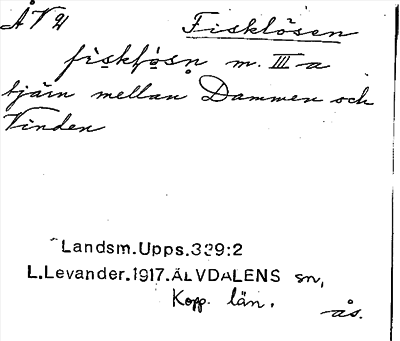 ÅV 21 Fisklösen
fiskļo̱sn m. III a
tjärn mellan Dammen och
Vinden
Landsm.Upps.339:2
L.Levander.1917.ÄLVDALENS sn,
Kopp. län.
-ås.